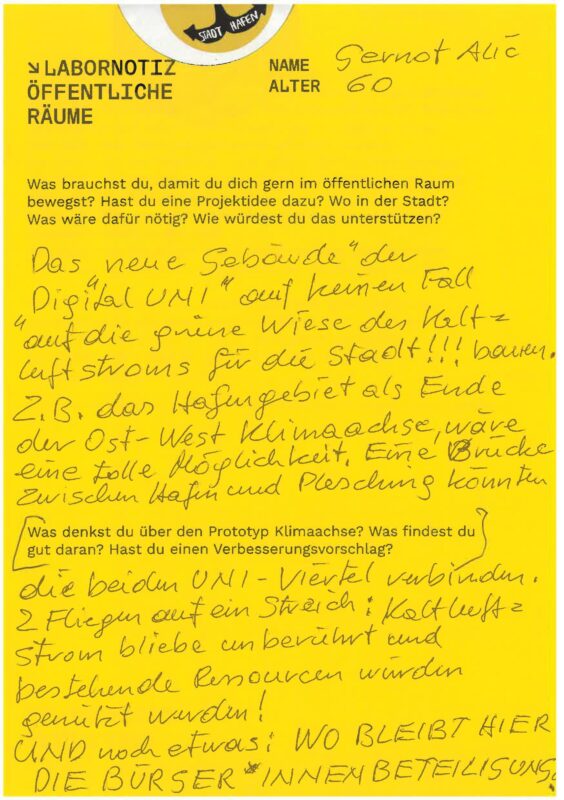 STADT HAFEN
↘ LABORNOTIZ
ÖFFENTLICHE
RÄUME
NAME Gernot Alic
ALTER 60
Was brauchst du, damit du dich gern im öffentlichen Raum
bewegst? Hast du eine Projektidee dazu? Wo in der Stadt?
Was wäre dafür nötig? Wie würdest du das unterstützen?
Das "neue Gebäude" der
Digital UNI" auf keinen Fall
"auf die grüne Wiese des Kalt=
luftstroms für die Stadt!!! bauen.
Z.B. das Hafengebiet als Ende
der Ost-West Klimaachse, wäre
eine tolle Möglichkeit. Eine Brücke
zwischen Hafen und Plesching könnten
Was denkst du über den Prototyp Klimaachse? Was findest du
gut daran? Hast du einen Verbesserungsvorschlag?
die beiden UNI-Viertel verbinden.
2 Fliegen auf ein Streich: Kaltluft=
strom bliebe unberührt und
bestehende Ressourcen würden
genützt werden!
UND noch etwas: WO BLEIBT HIER
DIE BÜRSER*INNENBETEILIGUNG